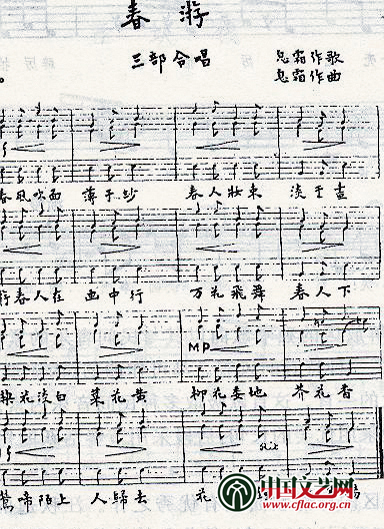 春游
三部合唱 息霜作歌
息霜作曲
春风吹面 薄于纱 春人妆束 淡于画
行春人在 画中行 万花飛舞 春人下
梨花淡白 菜花黄
MP
柳花委地 芥花香
Rit
莺啼陌上 人歸去 花
中国文艺网
www.cflac.org.cn